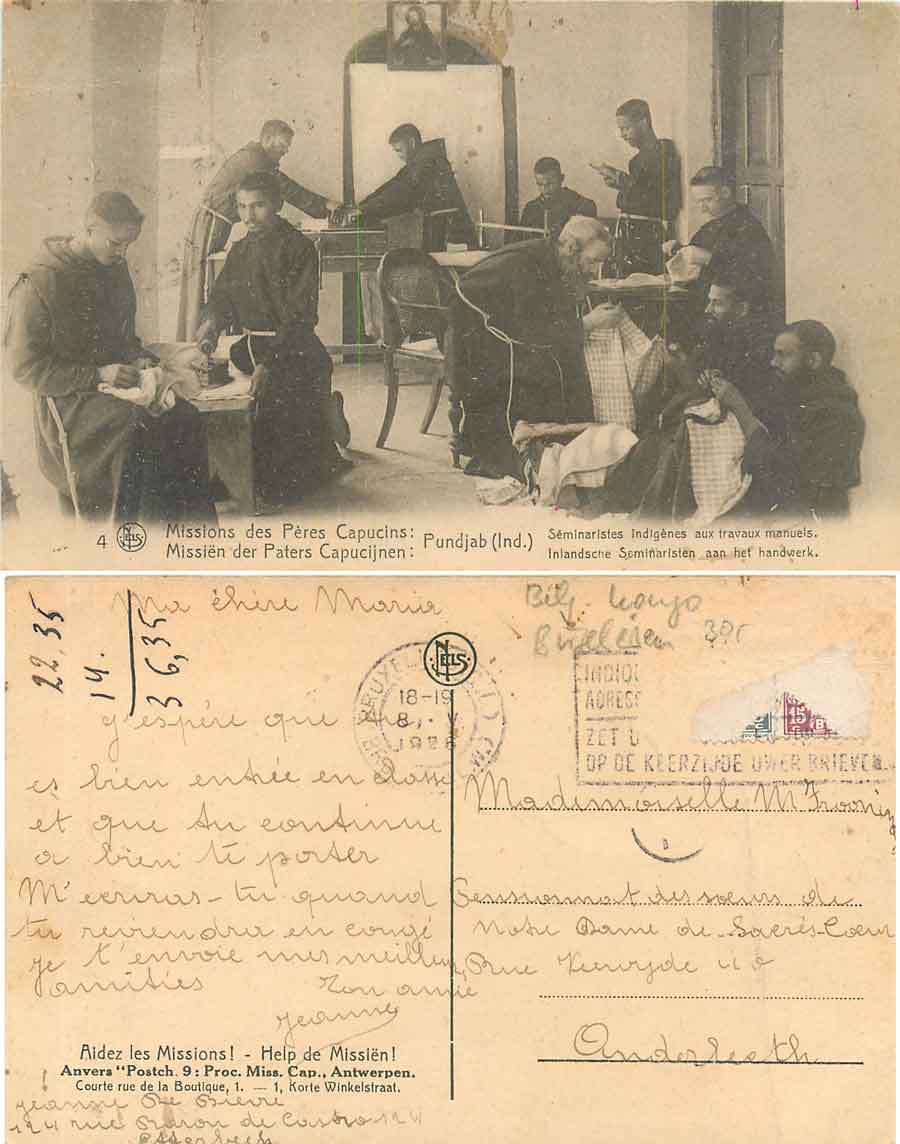 4 NELS Missions des Pères Capucins: Pundjab (Ind.) Séminaristes indigènes aux travaux manuels.
Missiën der Paters Capucijnen: Inlandsche Seminaristen aan het handwerk.
22.35
14.
36,35
Ma chère Maria
j'espère que tu
es bien entrée en classe
et que tu continue
a bien te porter
M'ecriras-tu quand
tu reviendra en congé
je t'envoie mes meilleur
amitiés Ton amie
Jeanne
Aidez les Missions! - Help de Missiën!
Anvers "Postch. 9: Proc. Miss. Cap., Antwerpen.
Courte rue de la Boutique, 1. — 1, Korte Winkelstraat.
Jeanne De Bievre
124 rue Baron de Castro 124
Etterbeek
Belg. Kongo
NELS
BRUXEL
18-19
8 V
1926
INDIQ
ADRESS
ZET U
OP DE KEERZIJDE UWER BRIEVEN
15
Mademoiselle M
Pensionnat des sœurs de
Notre Dame de Sacrés-Cœur
Rue
Anderlecth